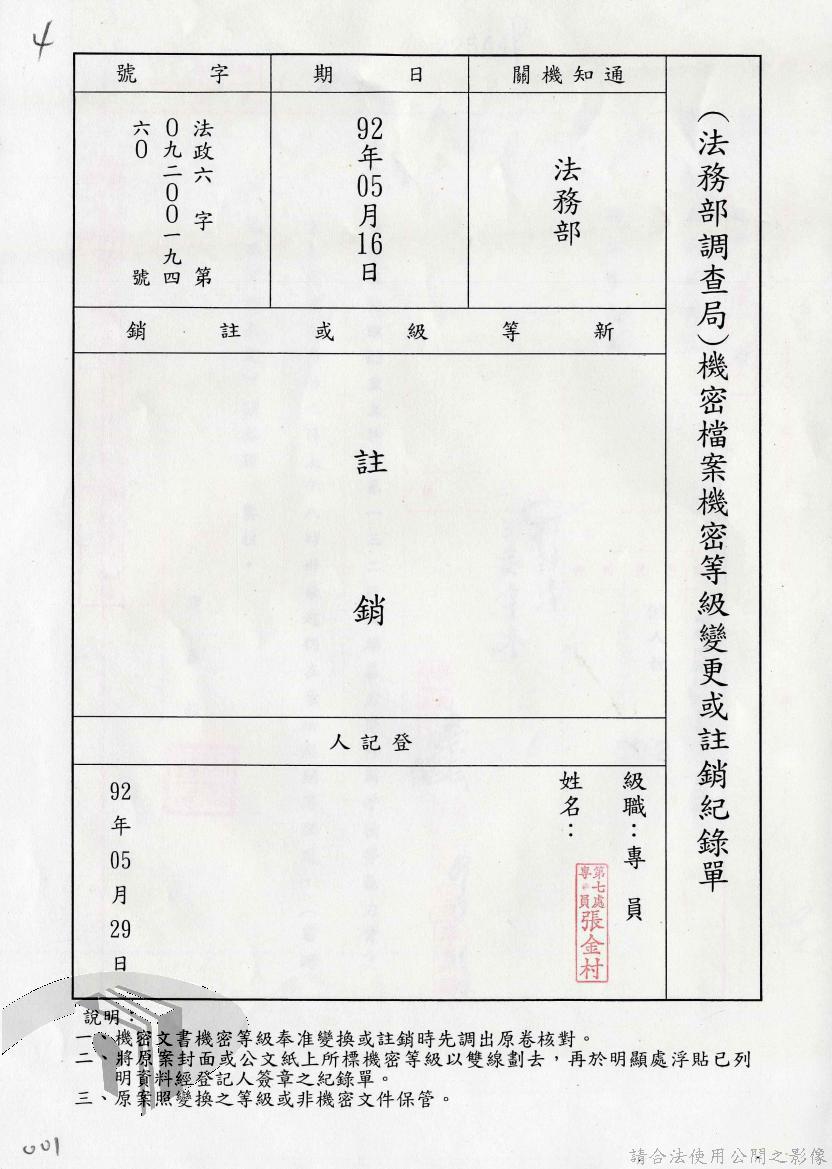 4
(法務部調查局)機密檔案機密等級變更或註銷紀錄單
通知機關
法務部
日期
92年05月16日
字號
法政六字第
０九二００一九四
六０號
新等級或註銷
註銷
登記人
級職：專員
姓名：
第七處
專員
張金村
92年05月29日
說明：
一、機密文書機密等級奉准變換或註銷時先調出原卷核對。
二、將原案封面或公文紙上所標機密等級以雙線劃去，再於明顯處浮貼已列
明資料經登記人簽章之紀錄單。
三、原案照變換之等級或非機密文件保管。
001
請合法使用公開之影像